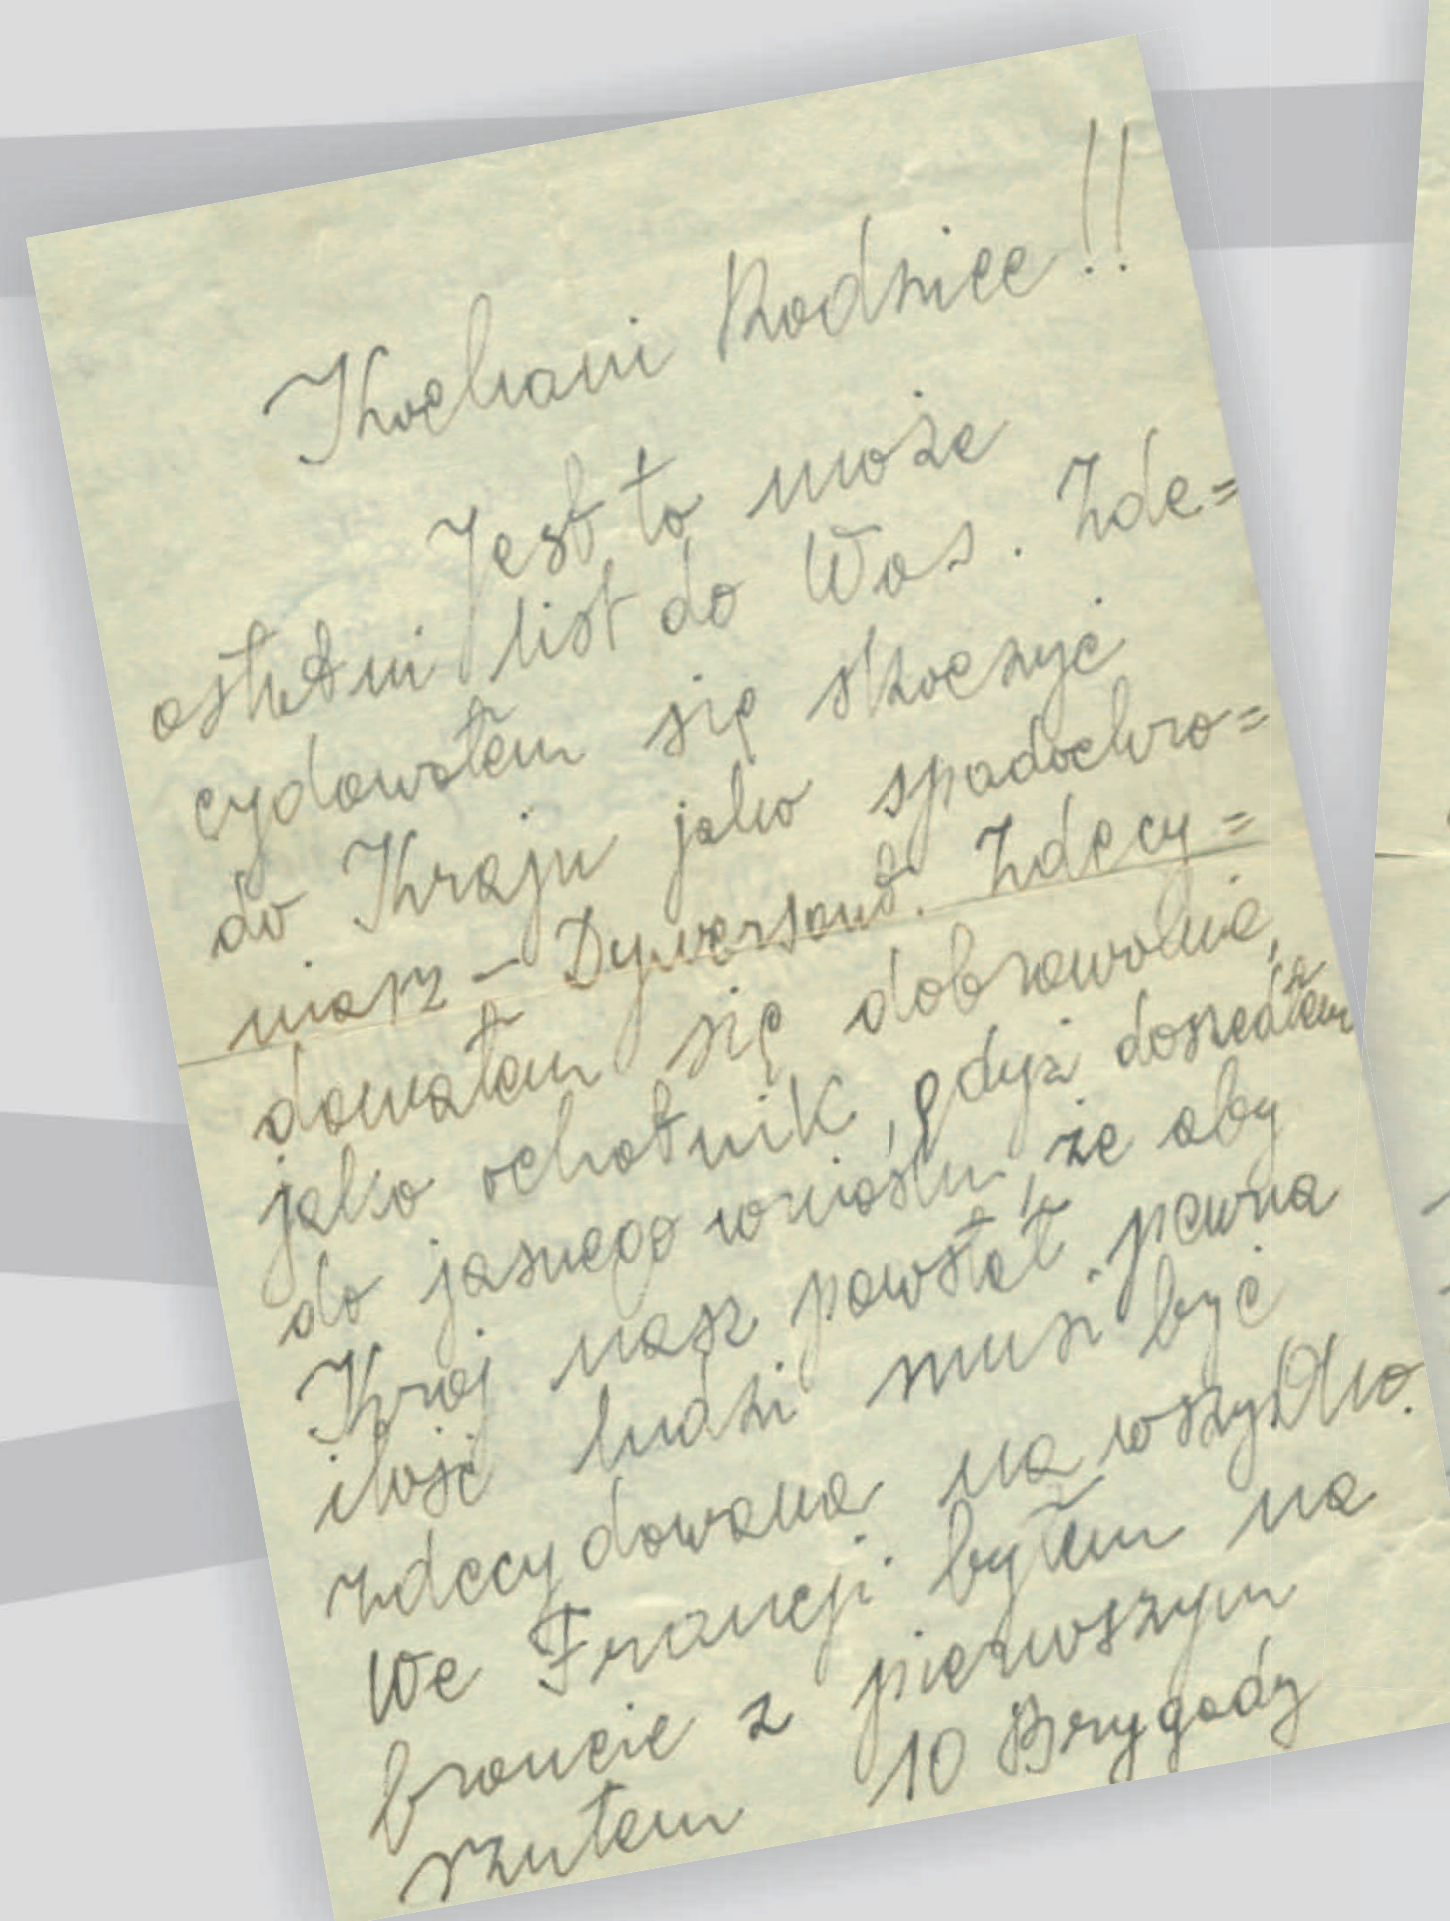 Kochani Rodzice!!
Jest to może
ostatni list do Was. Zde=
cydowałem się skoczyć
do Kraju jako spadochro=
niarz – Dywersant. Zdecy=
dowałem się dobrowolnie,
jako ochotnik, gdyż doszedłem
do jasnego wniosku, że aby
Kraj nasz powstał, pewna
ilość ludzi musi być
zdecydowana na wszystko.
We Francji byłem na
froncie z pierwszym
rzutem 10 Brygady